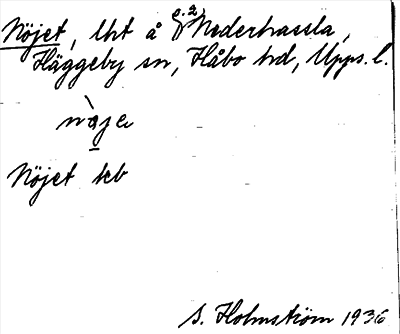 Nöjet, lht å Nederhassla,
Häggeby sn, Håbo hd, Upps. l.
Nöjet kb
S. Holmström 1936